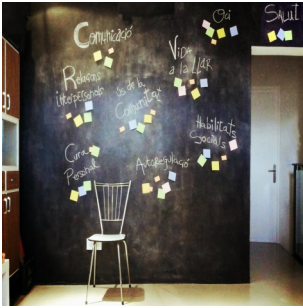 Comunicació
Oci
Salut
Vida
a la llar
Relacions
interpersonals
ús de la
Comunitat
Habilitats
Socials
Cura
Personal
Autoregulació